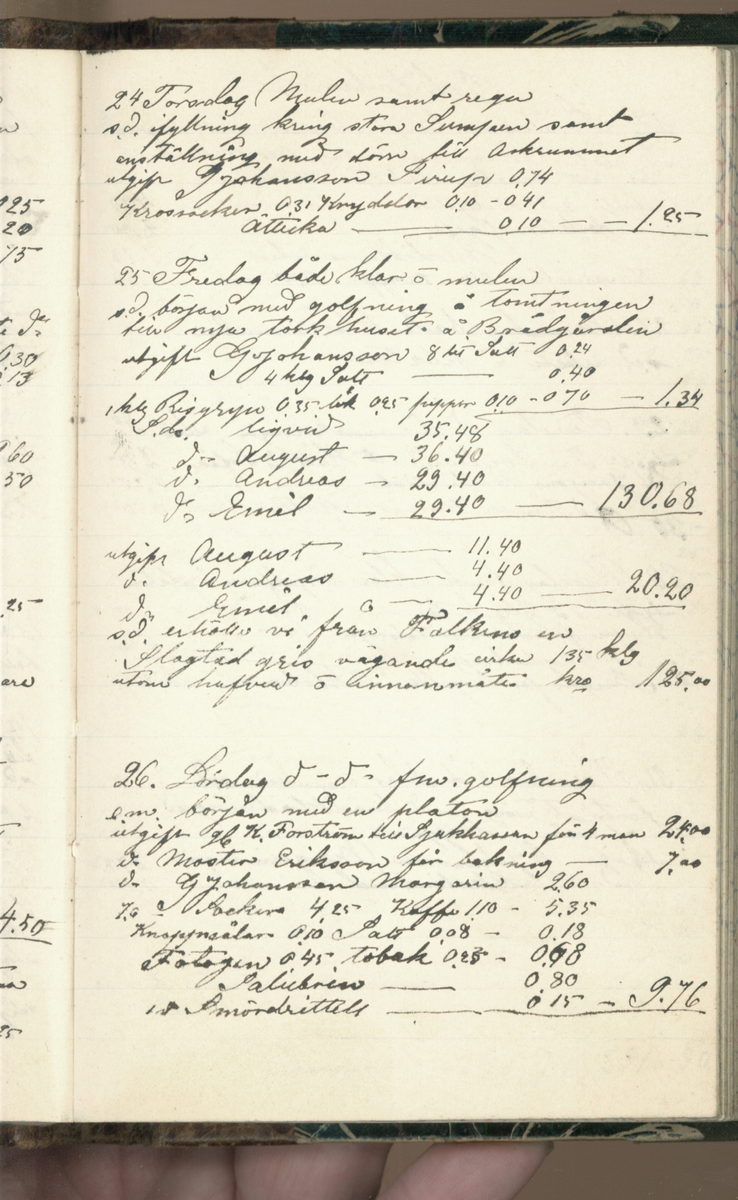 25
20
75
0.30
0.13
60
50
.25
are
4.50
25
24 Torsdag Mulen samt regn
s.d. ifyllning kring stora Sumpen samt
anställning med dörrn till Askrummet
utgift G Johansson Sirup 0.74
Krossocker 0.31 Kryddor 0.10 - 0.41
Ätticka — 0.10 — — 1.25
25 Fredag både klar o mulen
s.d. början med golfning å tomtningen
till nya torkhuset å Brädgården
utgift G Johansson 8 lit Salt 0.24
4 klg Salt — 0.40
1 klg Risgryn 0.35 lök 0.25 peppar 0.10 - 0.70 — 1.34
S.d. liqvid 35.48
d:o August — 36.40
d:o Andreas — 29.40
d:o Emil — 29.40 — 130.68
utgift August — 11.40
d:o Andreas — 4.40
d:o Emil — 4.40 — 20.20
s.d. erhöllo vi från Falkens en
Slagtad gris vägande cirka 135 klg
utom hufvud o innanmäte kro 125.00
26. Lördag d:o d:o fm. golfning
e.m. början med en platon
utgift gb K. Forström till Sjukkassan för 4 man 24.00
d:o Moster Eriksson för bakning — 7.00
d:o G Johansson Margarin 2.60
Socker 4.25 Kaffe 1.10 - 5.35
Knappnålar 0.10 Salt 0.08 - 0.18
Fotogen 0.45 tobak 0.23 - 0.68
— 0.80
1 st Smördrittel — 0.15 — 9.76